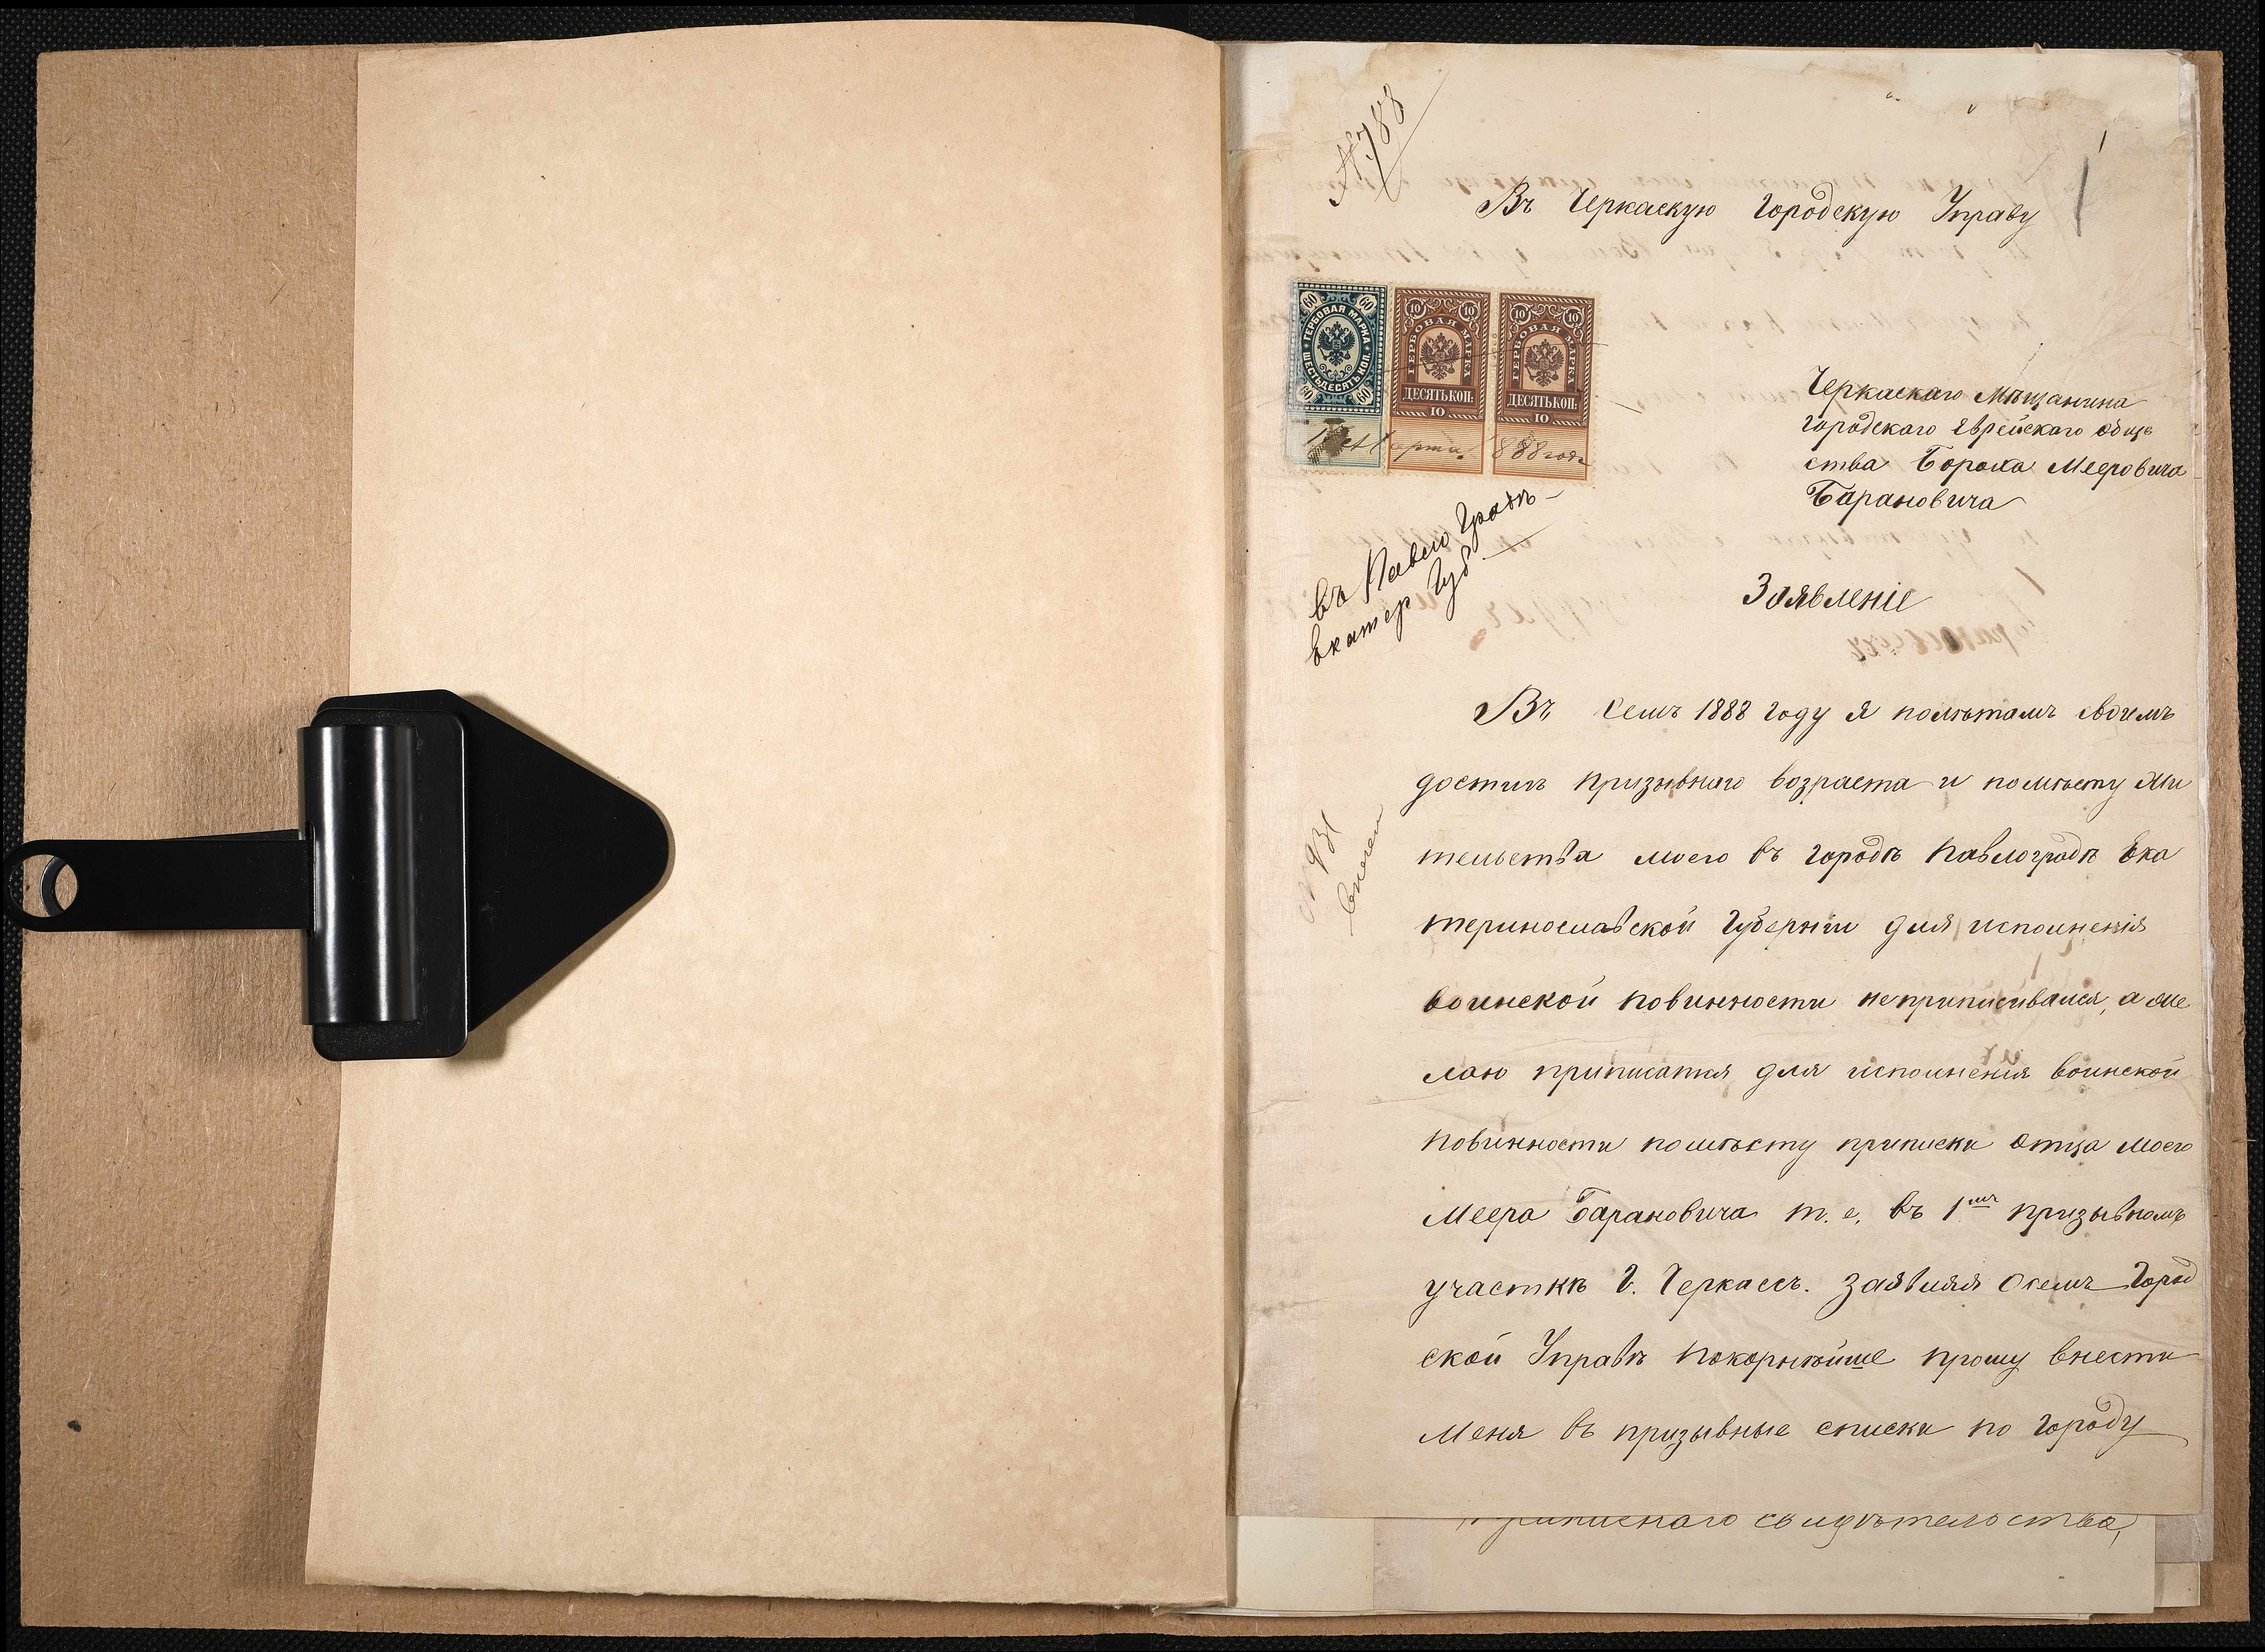 № 788
1
Въ Черкаскую Городскую Управу
60 60
ГЕРБОВАЯ МАРКА
ШЕСТЬДЕСЯТЪ КОП.
60 60
10 10
ГЕРБОВАЯ МАРКА
ДЕСЯТЬ КОП:
10
10 10
ГЕРБОВАЯ МАРКА
ДЕСЯТЬ КОП:
10
Марта 1888 года
Черкаскаго Мѣщанина
городскаго Еврейскаго обще
ства Бороха Мееровича
Барановича
въ Павлоградъ
Екатер Губ
Заявленіе
Въ семъ 1888 году я полѣтамъ своимъ
достигъ призывнаго возраста и помѣсту жи
тельства моего въ городѣ Павлоградѣ Ека
теринославской Губерніи для исполненія
воинской повинности неприписывался, а же
лаю приписатся для исполненія воинской
повинности помѣсту приписки отца моего
Меера Барановича т. е. въ 1мъ призывномъ
участкѣ г. Черкассъ. Заявляя осемъ Город
ской Управѣ покорнѣйше прошу внести
меня въ призывные списки по городу
приписнаго свидѣтельства,